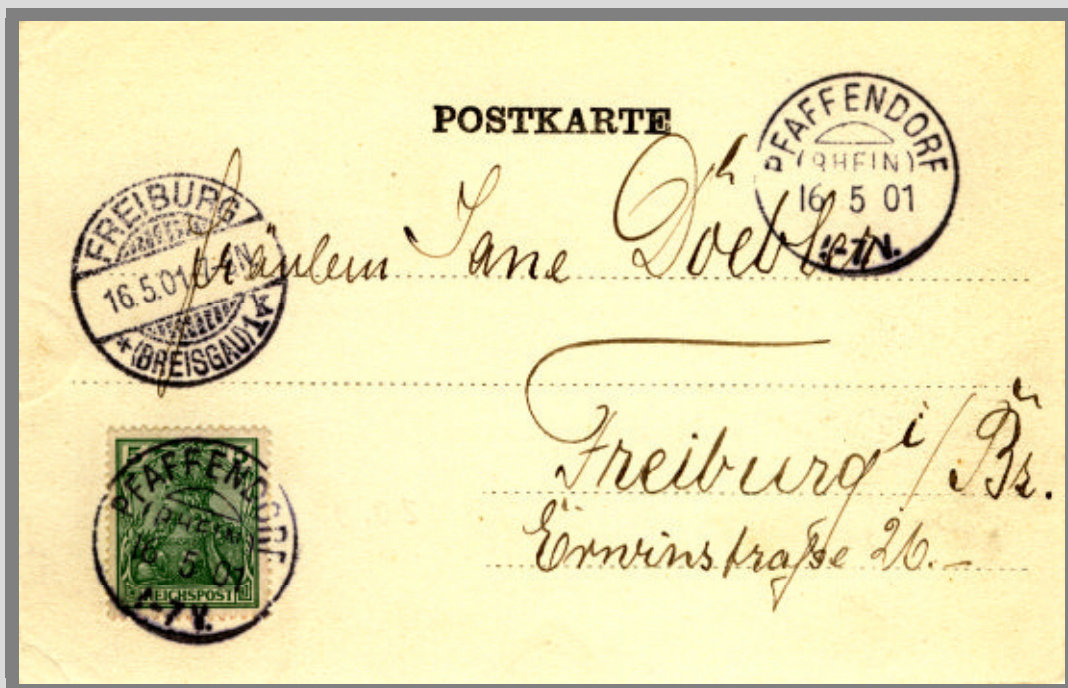 POSTKARTE
PFAFFENDORF
(RHEIN)
16 5 01
-7V.
FREIBURG
16.5.01
(BREISGAU)
Fräulein Jane Doebber
Freiburg i/Br.
Erwinstraße 26.-
PFAFFENDORF
(RHEIN)
16 5 01
-7V.
5
REICHSPOST